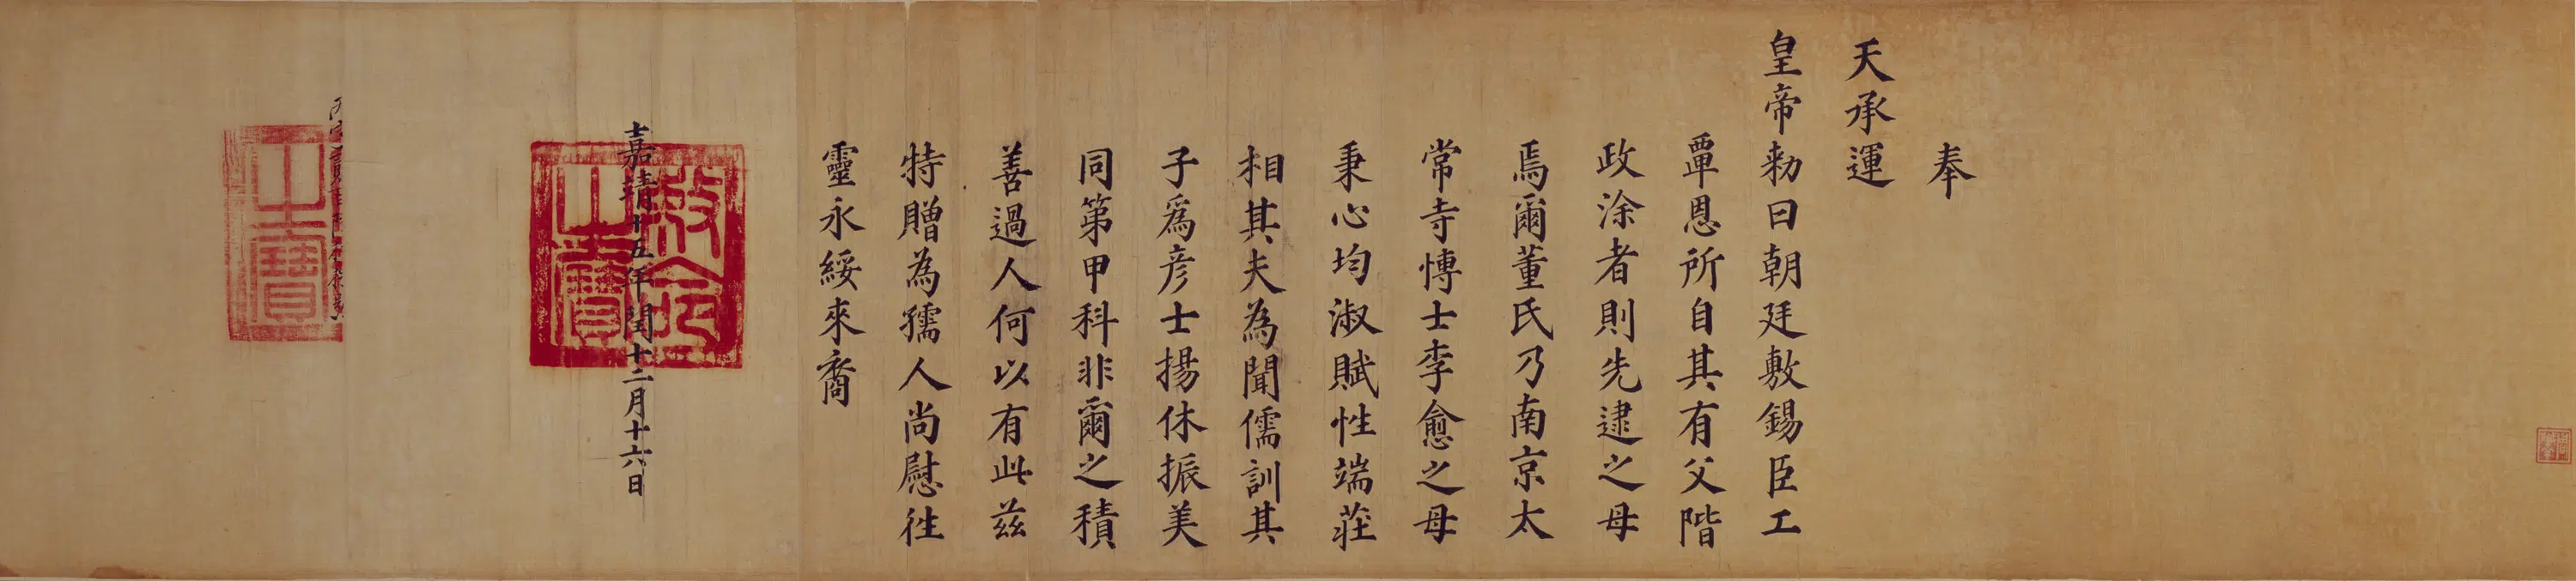 奉
天承運
皇帝勑曰朝廷敷錫臣工
覃恩所自其有父階
政涂者則先逮之母
焉爾董氏乃南京太
常寺博士李愈之母
秉心均淑賦性端莊
相其夫為聞儒訓其
子爲彥士揚休振美
同第甲科非爾之積
善過人何以有此茲
特贈為孺人尚慰徃
靈永綏來裔
嘉靖十五年閏十二月十六日
敕命之寶
之寶